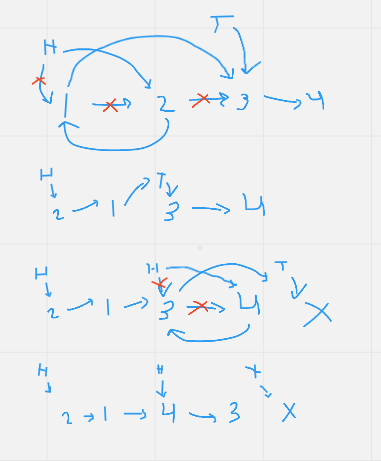 T
H
1 2 3 4
H T
2 1 3 4
H H T
2 1 3 4 X
H H
2 1 4 3 X